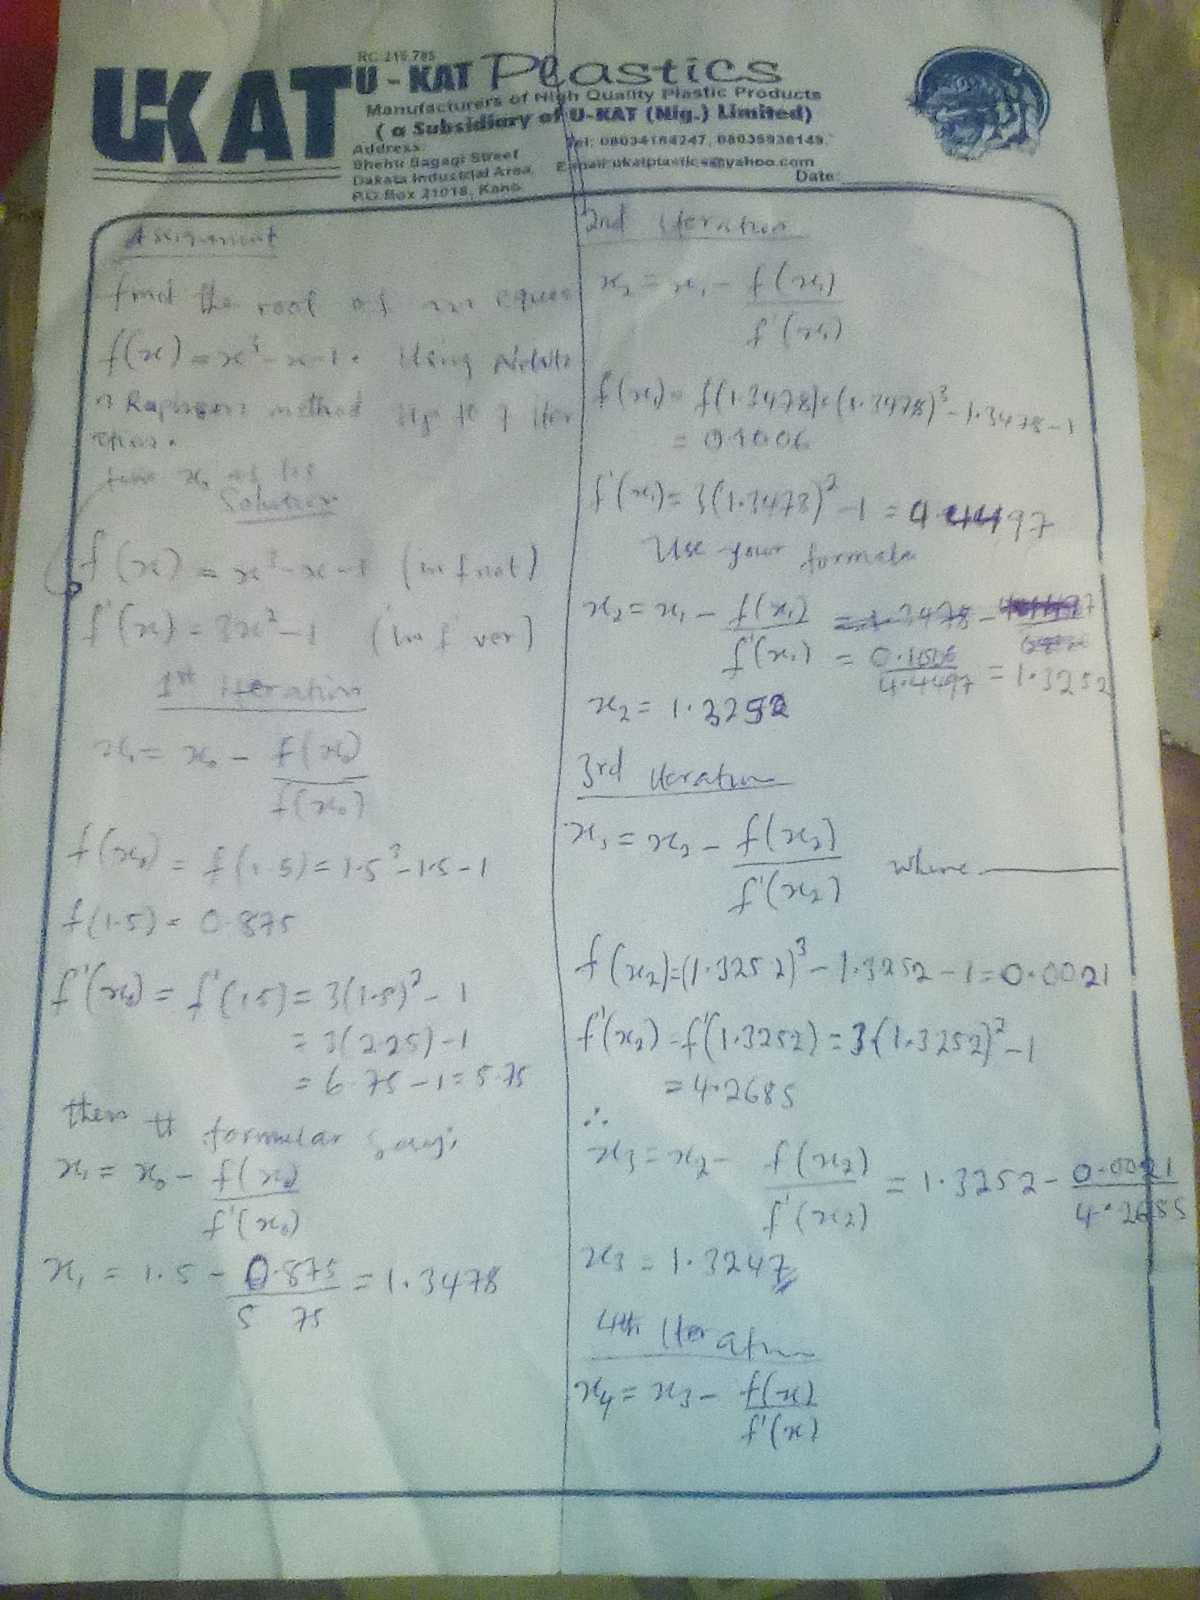 RC 216 785
UKAT
U-KAT Plastics
Manufacturers of High Quality Plastic Products
(a Subsidiary of U-KAT (Nig.) Limited)
Address
Shehu Bagagi Street
Dakata Industrial Area,
P.O.Box 21018, Kano.
Tel: 08034164247,
E-mail: ukatplastics@yahoo.com
Date:
Assignment
find the root of an
f(x) = x³-x-1. Using Newto
n Raphson method up to iter
ation.
take x₀ as 1.5
Solution
f(x) = x³-x-1 (in f not)
f'(x) = 3x²-1 (in f ver)
1st Iteration
x₁ = x₀ - f(x₀)/f(x₀)
f(x₀) = f(1.5) = 1.5³-1.5-1
f(1.5) = 0.875
f'(x₀) = f'(1.5) = 3(1.5)²-1
= 3(2.25)-1
= 6.75-1=5.75
then formular says
x₁ = x₀ - f(x₀)/f'(x₀)
x₁ = 1.5 - 0.875/5 75 = 1.3478
2nd Iteration
x₂ = x₁ - f(x₁)/f'(x₁)
f(x₁) = f(1.3478) = (1.3478)³-1.3478-1
= 0.1006
f'(x₁) = 3(1.3478)²-1 = 4.4497
Use your formula
x₂ = x₁ - f(x₁)/f'(x₁) = 1.3478 -
= 0.1006/4.4497 = 1.3252
x₂ = 1.3252
3rd Iteration
x₃ = x₂ - f(x₂)/f'(x₂) where
f(x₂)=(1.3252)³-1.3252-1=0.0021
f'(x₂)=f'(1.3252)=3(1.3252)²-1
= 4.2685
∴
x₃ = x₂ - f(x₂)/f'(x₂) = 1.3252 - 0.0021/4.2685
x₃ = 1.3247
4th Iteration
x₄ = x₃ - f(x)/f'(x)